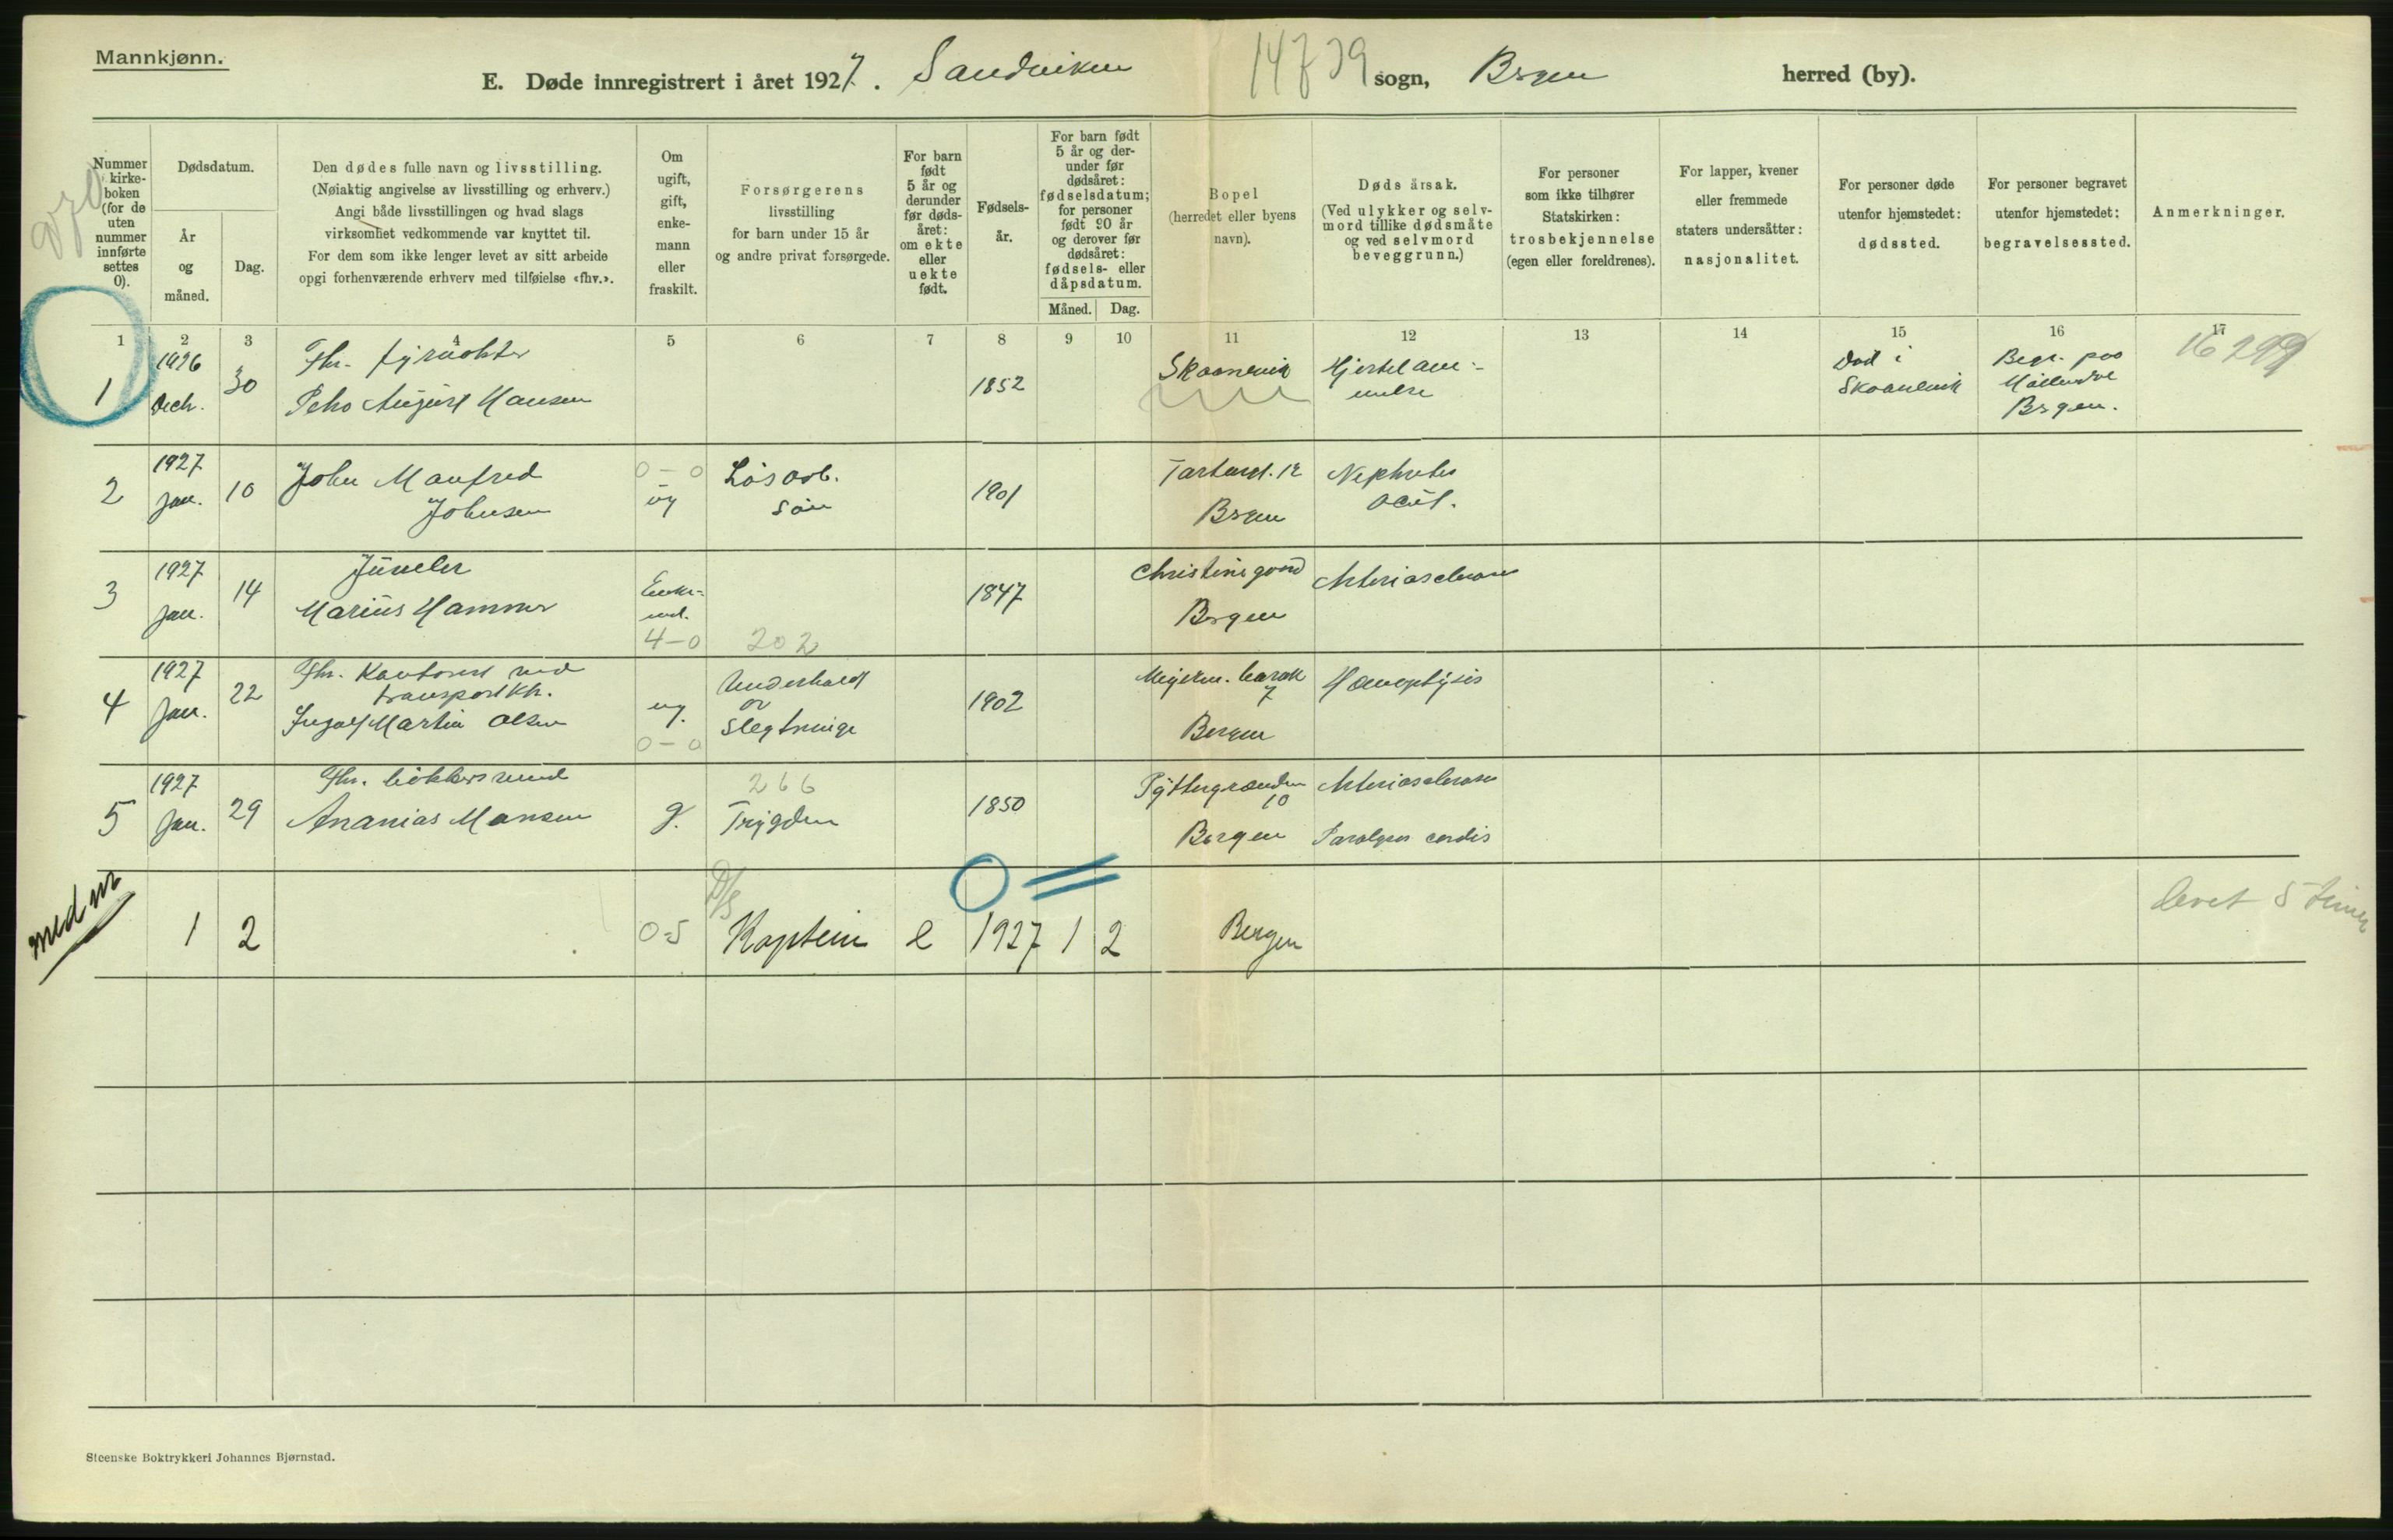 Mannkjønn.
E. Døde innregistrert i året 1927. Sandviken 14739 sogn, Bergen herred (by).
Nummer i kirke-boken (for de uten nummer innførte settes 0).
Dødsdatum.
År og måned.
Dag.
Den dødes fulle navn og livsstilling.
(Nøiaktig angivelse av livsstilling og erhverv.)
Angi både livsstillingen og hvad slags
virksomhet vedkommende var knyttet til.
For dem som ikke lenger levet av sitt arbeide
opgi forhenværende erhverv med tilføielse «fhv.».
Om ugift, gift, enke-mann eller fraskilt.
Forsørgerens
livsstilling
for barn under 15 år
og andre privat forsørgede.
For barn født 5 år og derunder før døds-året: om ekte eller uekte født.
Fødsels-år.
For barn født 5 år og der-under før dødsåret: fødselsdatum; for personer født 90 år og derover før dødsåret: fødsels- eller dåpsdatum.
Måned. Dag.
Bopel
(herredet eller byens navn).
Døds årsak.
(Ved ulykker og selv-mord tillike dødsmåte og ved selvmord beveggrunn.)
For personer som ikke tilhører Statskirken: trosbekjennelse (egen eller foreldrenes).
For lapper, kvener eller fremmede staters undersåtter: nasjonalitet.
For personer døde utenfor hjemstedet: dødssted.
For personer begravet utenfor hjemstedet: begravelsessted.
Anmerkninger.
1 2 3 4 5 6 7 8 9 10 11 12 13 14 15 16 17
1 1926 Dech. 30 Fhv. fyrvokter
Peho August Hansen 1852 Skaanevik Hjertelam-melse Død i Skaanevik Begr. paa Møllendal Bergen. 16299
2 1927 Jan. 10 John Manfred
Johnsen 0-0 ug Løsarb. søn 1901 Tartargt. 12 Bergen Nephritis acut.
3 1927 Jan. 14 Juveler
Marius Hammer Enke-md. 4-0 202 1847 Christinegaard Bergen Arteriosclerose
4 1927 Jan. 22 Fhv. Kontorist ved
transportkh.
Ingolf Martin Olsen ug. 0-0 Underholdt av slegtninge 1902 barak 7 Bergen Hæmoptysis
5 1927 Jan. 29 Fhv. bøkkersvend
Ananias Monsen g. 266 Trygden 1850 Pyttergrænden 10 Bergen Arteriosclerose Paralysis cordis
med nr 1 2 0-5 D/S Kaptein e 1927 1 2 Bergen levet 5 timer
Steenske Boktrykkeri Johannes Bjørnstad.